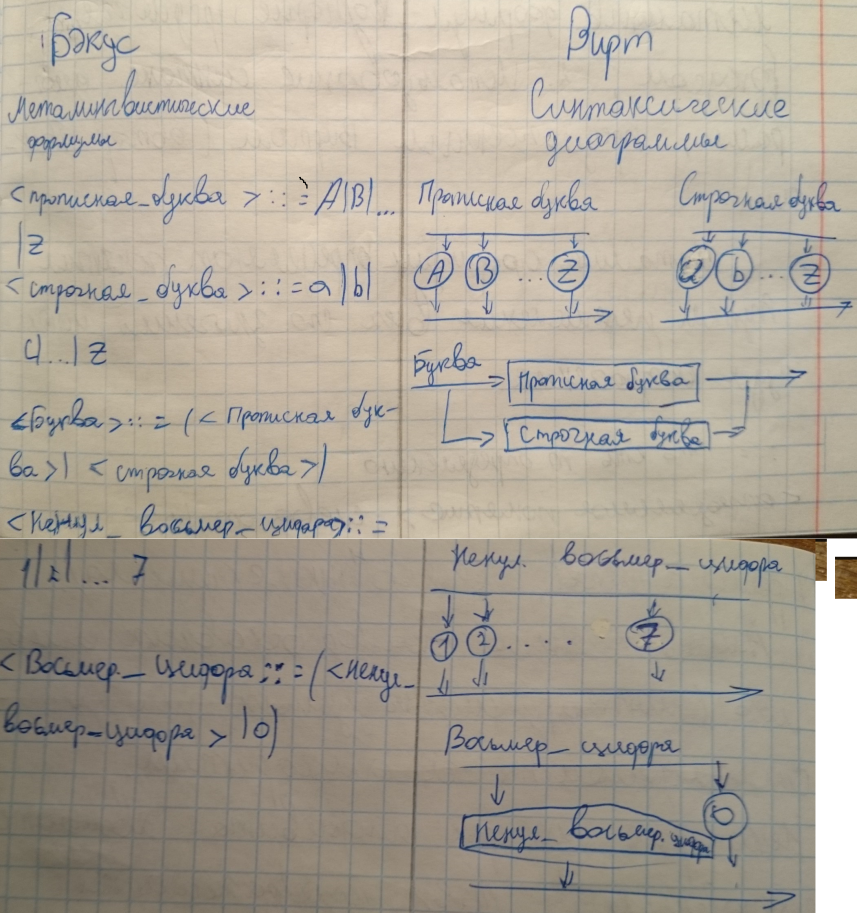 Бэкус
Металингвистические
формулы
<прописная_буква >::=A|B|...
|Z
<строчная_буква>::=a|b|
c|...|z
<Буква>::=(<Прописная бук-
ва>| <строчная буква>)
<Ненул_ восьмер_цифра>::=
1|2|... 7
<Восьмер_ цифра::=(<ненул_
восьмер_цифра > |0)
Вирт
Синтаксические
диаграммы
Прописная буква
Строчная буква
A B ... Z
a b ... z
Буква
Прописная буква
Строчная буква
Ненул. восьмер_ цифра
1 2 .... 7
Восьмер_ цифра
0
Ненул_ восьмер. цифра